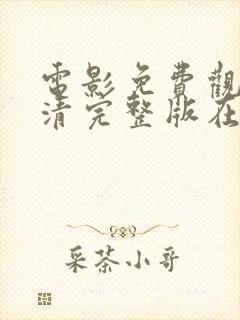 電影免費觀
清完整版在
采茶小哥